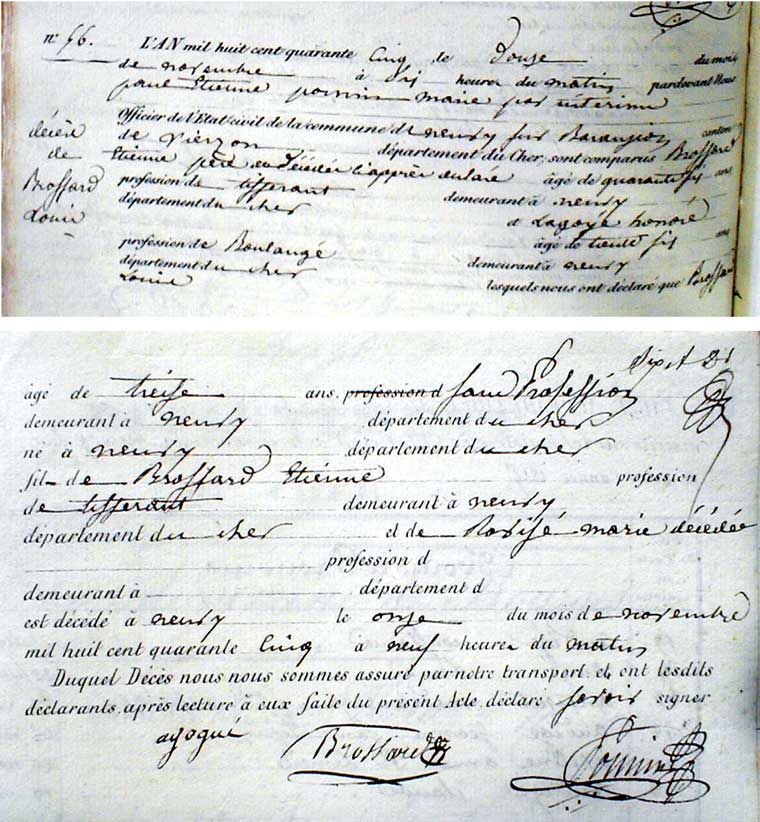 n.° 56. L'AN mil huit cent quarante Cinq le Douse du mois
de novembre à dix heures du matin pardevant Nous
paul Etienne poirier maire par interim
Officier de l'Etat civil de la commune de neuvy sur Baranjon canton
de vierzon département du Cher, sont comparus Brossard
Etienne pere du Décédé ci après declaré âgé de quarante six ans
profession de tisserant demeurant à neuvy
département du cher et honoré
profession de Boulangé âgé de trente six ans
département du cher demeurant à neuvy
Louis lesquels nous ont déclaré que Brossard
décéé
de
Brossard
Louis
âgé de treise ans, profession d sans Profession
demeurant à neuvy département du cher
né à neuvy département du cher
fils de Brossard Etiénne profession
de tisserant demeurant à neuvy
département du cher et de marie décédée
profession d
demeurant à département d
est décédé à neuvy le onse du mois de novembre
mil huit cent quarante Cinq à neuf heures du matin
Duquel Décès nous nous sommes assuré par notre transport, et ont lesdits
déclarants, après lecture à eux faite du présent Acte, déclaré savoir signer
Brossard